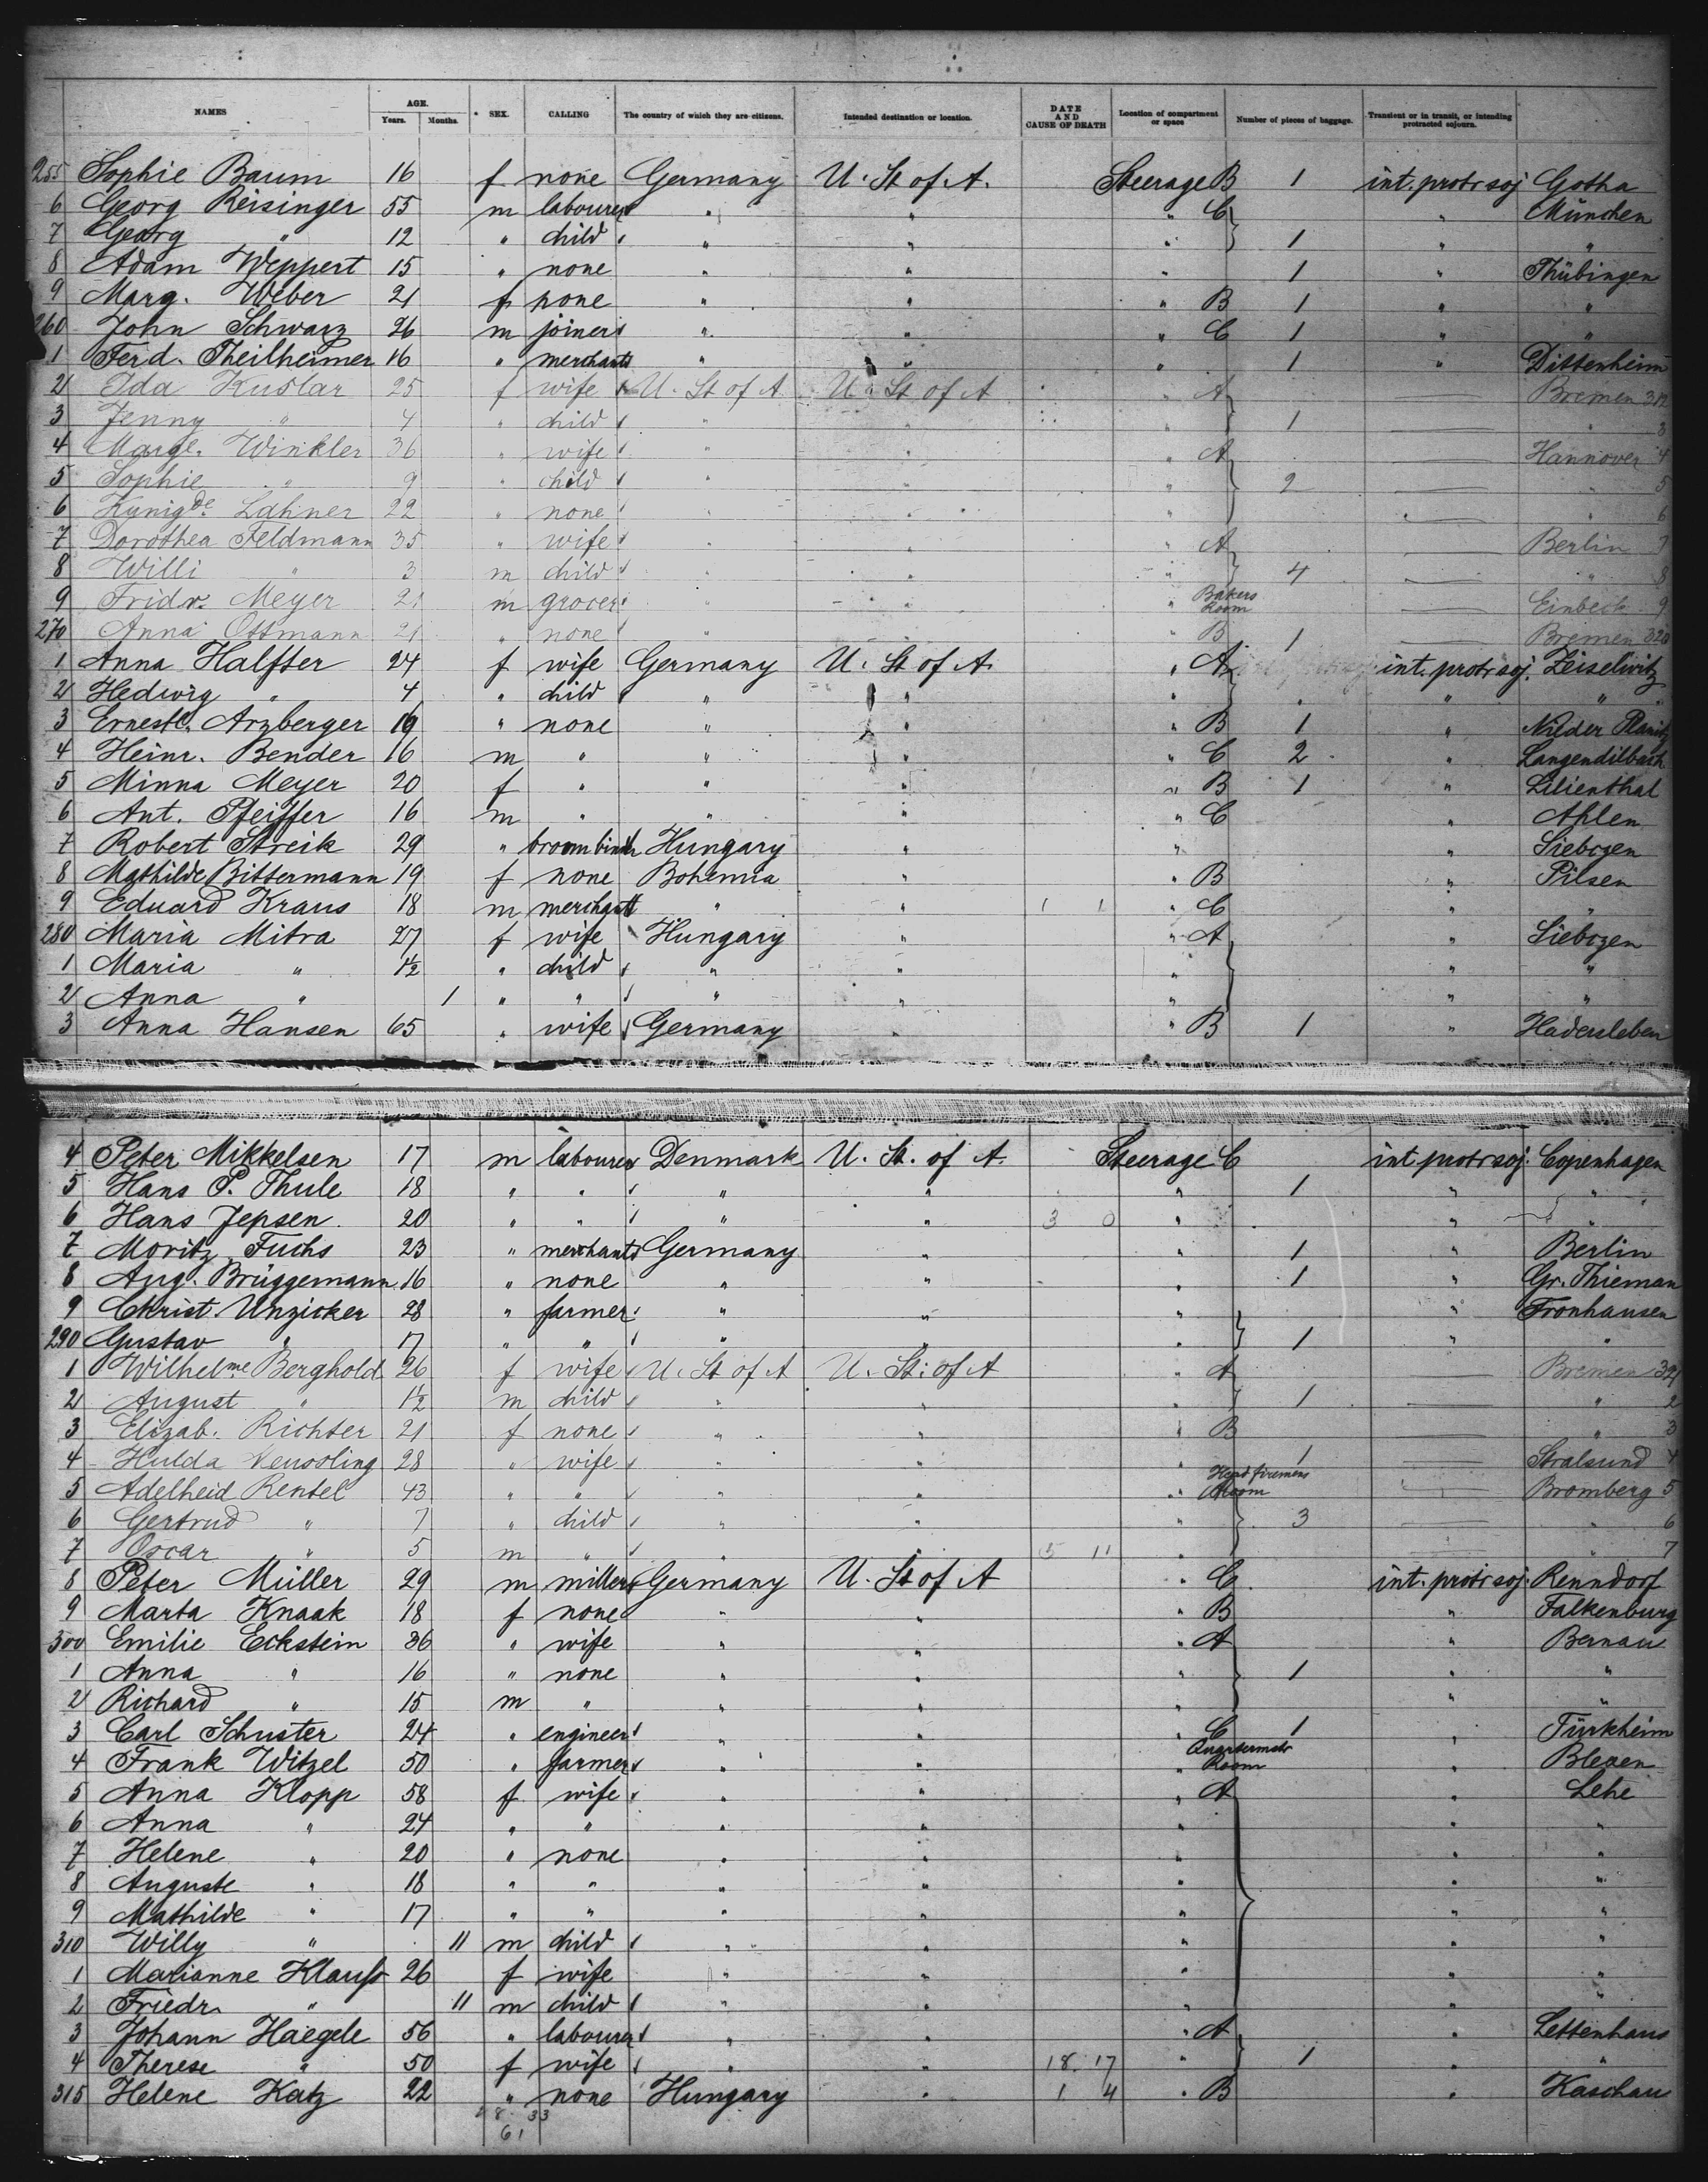 NAMES AGE. Years. Months. SEX. CALLING The country of which they are citizens. Intended destination or location. DATE AND CAUSE OF DEATH Location of compartment or space Number of pieces of baggage. Transient or in transit, or intending protracted sojourn.
255 Sophie Baum 16 f none Germany U. St of A. Steerage B 1 int. protr soj Gotha
6 Georg Reisinger 55 m labourer " " " C " München
7 Georg " 12 " child " " " 1 " "
8 Adam Weppert 15 " none " " " 1 " Thübingen
9 Marg. Weber 21 f none " " " B 1 " "
260 John Schwarz 26 m joiner " " " C 1 " "
1 Ferd. Theilheimer 16 " merchant " " " 1 " Dittenheim
2 Ida Kuslar 25 f wife U. St of A U. St of A " A — Bremen 312
3 Jenny " 4 " child " " " 1 — " 3
4 Margt. Winkler 36 " wife " " " A — Hannover 4
5 Sophie " 9 " child " " " 2 — " 5
6 Kunigde. Lahner 22 " none " " " — " 6
7 Dorothea Feldmann 35 " wife " " " A — Berlin 7
8 Willi " 3 m child " " " 4 — " 8
9 Fridr. Meyer 21 m grocer " " " Bakers Room — Einbeck 9
270 Anna Ottmann 21 " none " " " B 1 — Bremen 320
1 Anna Halfter 24 f wife Germany U. St of A. " A int. protr soj.
2 Hedwig " 4 " child " " " " "
3 Ernest. Arzberger 19 " none " " " B 1 " Nieder Planitz
4 Heinr. Bender 16 m " " " " C 2 " Langendilbach
5 Minna Meyer 20 f " " " " B 1 " Lilienthal
6 Ant. Pfeiffer 16 m " " " " C " Ahlen
7 Robert Streik 29 " broombinder Hungary " " "
8 Mathilde Bittermann 19 f none Bohemia " " B " Pilsen
9 Eduard Kraus 18 m merchant " " 1 1 " C " "
280 Maria Mitra 27 f wife Hungary " " A "
1 Maria " 1½ " child " " " " "
2 Anna " 1 " " " " " " "
3 Anna Hansen 65 " wife Germany " " B 1 " Hadersleben
4 Peter Mikkelsen 17 m labourer Denmark U. St. of A. Steerage C int protr soj. Copenhagen
5 Hans P. Thule 18 " " " " " 1 " "
6 Hans Jepsen. 20 " " " " 3 0 " " "
7 Moritz Fuchs 23 " merchant Germany " " 1 " Berlin
8 Aug. Brüggemann 16 " none " " " 1 " Gr. Thieman
9 Christ. Unzicker 28 " farmer " " " " Fronhausen
290 Gustav " 17 " " " " " 1 " "
1 Wilhelme Berghold 26 f wife U. St of A U. St. of A " A — Bremen 321
2 August " 1½ m child " " " 1 — " 2
3 Elizab. Richter 21 f none " " " B — " 3
4 Hulda 28 " wife " " " 1 — Stralsund 4
5 Adelheid Rentel 43 " " " " " Head firemens Room — Bromberg 5
6 Gertrud " 7 " child " " " 3 — " 6
7 Oscar " 5 m " " " 5 11 " — " 7
8 Peter Müller 29 m miller Germany U. St of A " C int. protr soj. Renndorf
9 Marta Knaak 18 f none " " " B " Falkenburg
300 Emilie Eckstein 36 " wife " " " A " Bernau
1 Anna " 16 " none " " " 1 " "
2 Richard " 15 m " " " " " "
3 Carl Schuster 24 " engineer " " " C 1 " Türkheim
4 Frank Witzel 50 " farmer " " " Quartermstr Room " Blexen
5 Anna Klopp 58 f wife " " " A " Lehe
6 Anna " 24 " " " " " " "
7 Helene " 20 " none " " " " "
8 Auguste " 18 " " " " " " "
9 Mathilde " 17 " " " " " " "
310 Willy " 11 m child " " " " "
1 Marianne Klauss 26 f wife " " " " "
2 Friedr. " 11 m child " " " " "
3 Johann Haegele 56 " labourer " " " A " Lettenhaus
4 Therese " 50 f wife " " 18. 17 " 1 " "
315 Helene Katz 22 " none Hungary " 1 4 " B " Kaschau
33
61